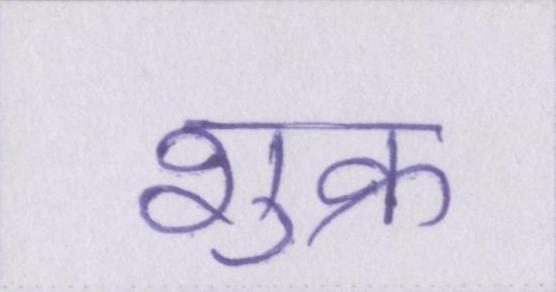 शुक्र